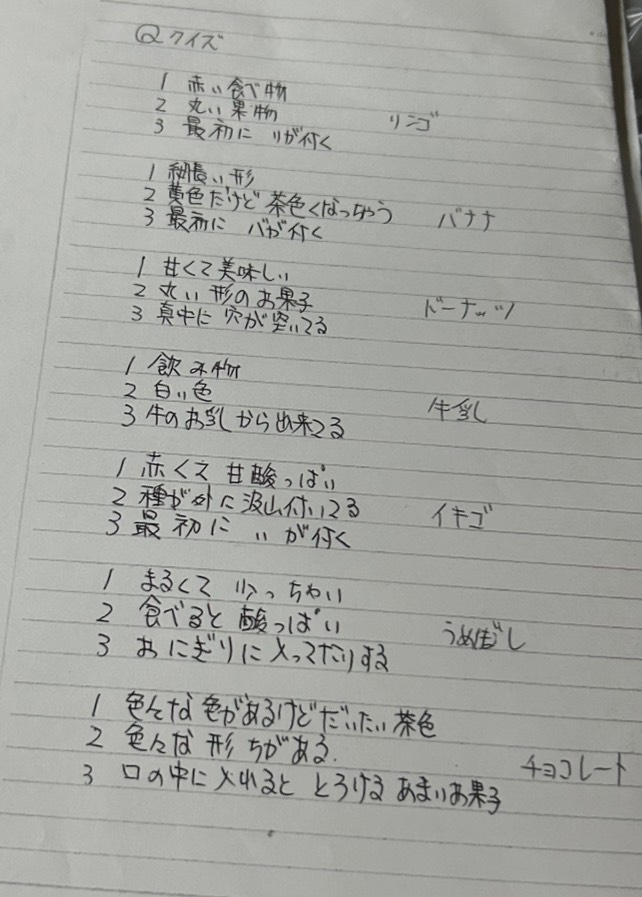 Qクイズ
1 赤い食べ物
2 丸い果物
3 最初に リが付く
リンゴ
1 細長い形
2 黄色だけど 茶色くなっちゃう
3 最初に バが付く
バナナ
1 甘くて美味しい
2 丸い形のお菓子
3 真中に 穴が空いてる
ドーナッツ
1 飲み物
2 白い色
3 牛のお乳から出来てる
牛乳
1 赤くて 甘酸っぱい
2 種が外に沢山付いてる
3 最初に いが付く
イチゴ
1 まるくて 少っちゃい
2 食べると 酸っぱい
3 おにぎりに入ってたりする
うめぼし
1 色々な色があるけどだいたい茶色
2 色々な 形ちがある.
3 口の中に入れると とろける あまいお菓子
チョコレート